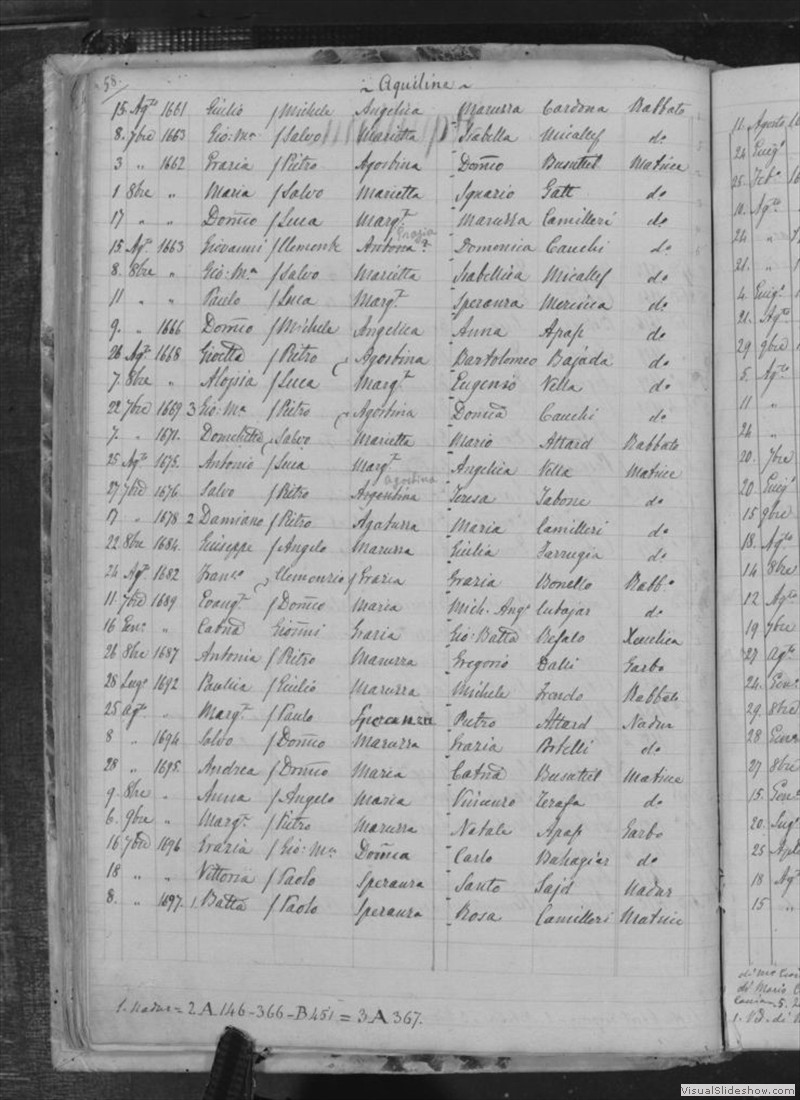 58
~ Aquiline ~
15 Agto 1661 Giulio / Michele Angelica Maruzza Cardona Rabbato
8. 7bre 1663 Gio: Ma / Salvo Marietta Isabella Micallef do
3 " 1662 Grazia / Pietro Agostina Domco Busuttil Matrice
1 8bre " Maria / Salvo Marietta Ignazio Gatt do
17 " " Domco / Luca Margta Maruzza Camilleri do
Grazia
15 Agto 1663 Giovanni / Clemente Antona? Domenica Cauchi do
8. 8bre " Gio: Ma / Salvo Marietta Isabellica Micallef do
11 " " Paulo / Luca Margta Speranza Mercieca do
9. " 1666 Domco / Michele Angelica Anna Apap do
26 Agto 1668 / Pietro Agostina Bartolomeo Bajada do
7. 8bre " Aloisia / Luca Margta Eugenio Vella do
22 7bre 1669 3 Gio: Ma / Pietro Agostina Domca Cauchi do
7. " 1671. Salvo Marietta Mario Attard Rabbato
25 Agto 1675. Antonio / Luca Margta Angelica Vella Matrice
agostina
27 7bre 1676 Salvo / Pietro Argentina Teresa Tabone do
17 " 1678 2 Damiano / Pietro Agatuzza Maria Camilleri do
22 8bre 1684. Giuseppe / Angelo Maruzza Giulia Farrugia do
24 Agto 1682 Franco Clemenzio / Grazia Grazia Bonello Rabbo
11. 7bre 1689 Evangta / Domco Maria Mich. Ango Cutajar do
16 Geno " Catna Gionni Grazia Gio: Batta Refalo Xeuchia
26 8bre 1687 Antonia / Pietro Maruzza Gregorio Dalli Garbo
28 Lugo 1692 Paulica / Giulio Maruzza Michele Rabbato
25 agto " Margta / Paulo Speranza Pietro Attard Nadur
8 " 1694 Salvo / Domco Maruzza Grazia Portelli do
28 " 1695. Andrea / Domco Maria Catna Busuttil Matrice
9. 8bre " Anna / Angelo Maria Vincenzo Terafa do
6. 9bre " Margta / Pietro Maruzza Natale Apap Garbo
16 7bre 1696 Grazia / Gio: Ma Domca Carlo Buhagiar do
18 " " Vittoria / Paolo Speranza Santo Sajd Nadur
8. " 1697. 1. Batta / Paolo Speranza Rosa Camilleri Matrice
1. Nadur = 2 A. 146 - 366 - B 451 = 3 A 367.
11. Agosto 16
24 Giugo
25. Febo 16
10. Agto
24 "
21. "
4. Giugo
21. Agto
29 9bre
5. Agto
11 "
26 "
20. 7bre
20 Giugo
15 9bre
18. Agto
14 8bre
12 Agto
19 7bre
27 agto
24. Geno
29. 8bre
28 Geno
27 8bre
15. Geno
20. Lugo
25 Aple
18 Agto
15 "
di Mario C
1. Vd. di
VisualSlideshow.com